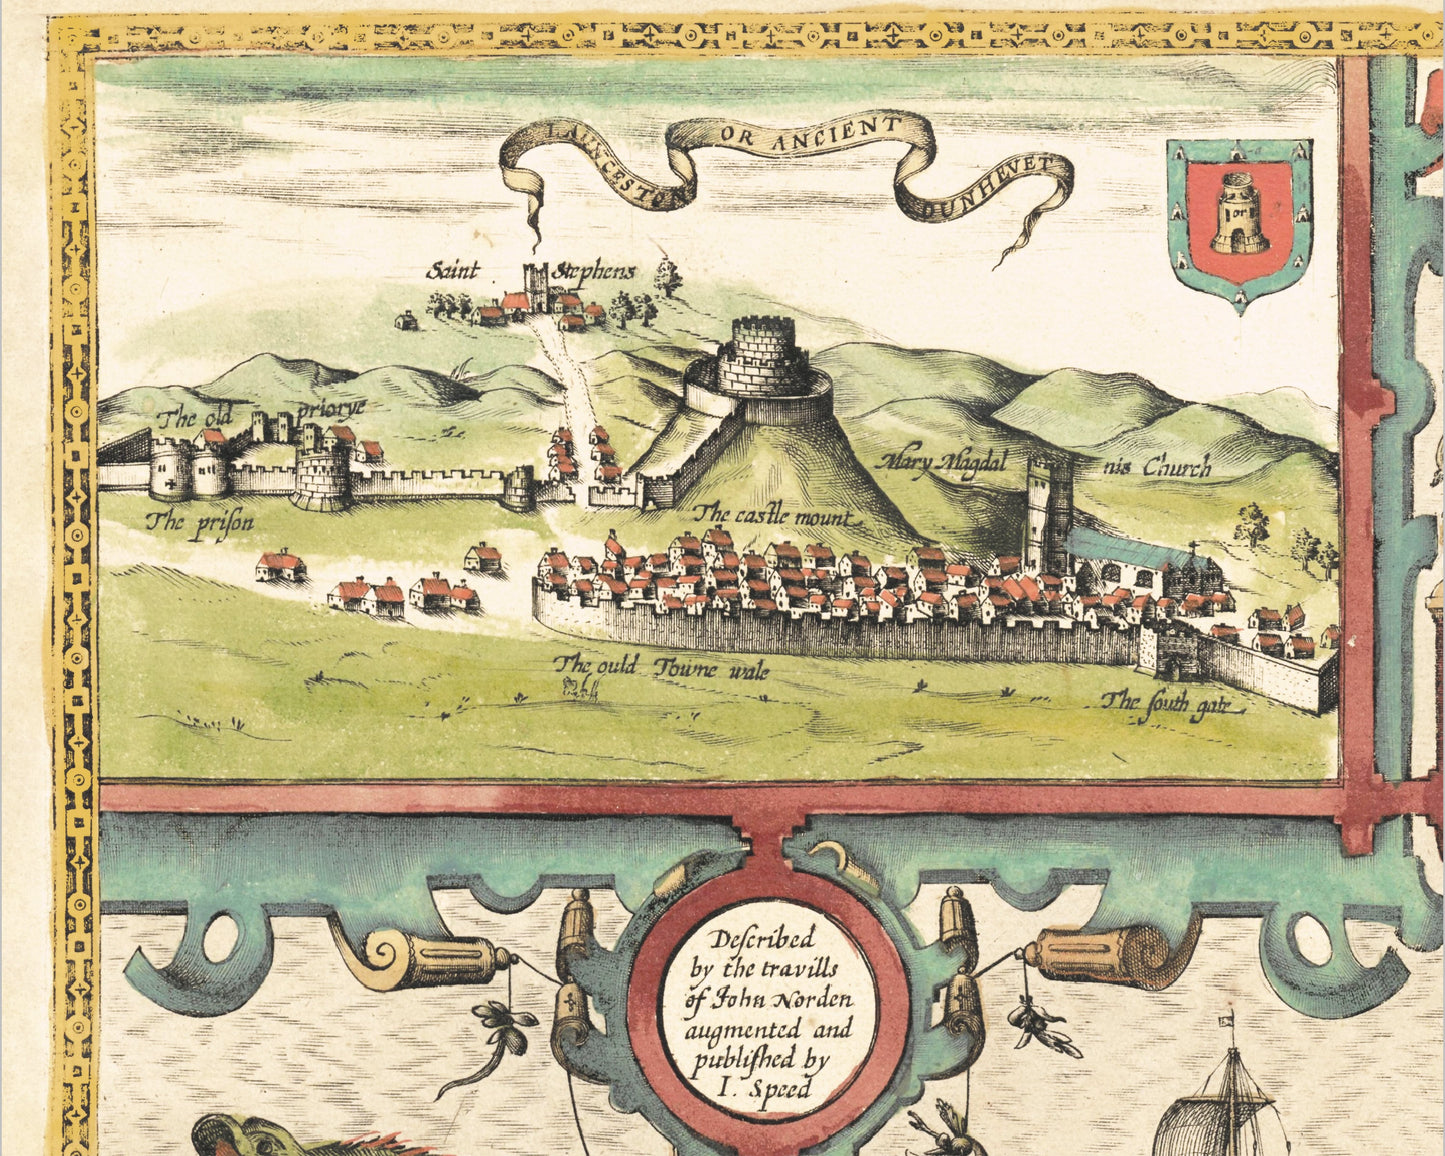 LAUNCESTON OR ANCIENT DUNHEVET
Saint Stephens
The old priorye
Mary Magdal nis Church
The priſon
The castle mount
The ould Towne wale
The ſouth gate
Deſcribed
by the travills
of John Norden
augmented and
publiſhed by
I. Speed